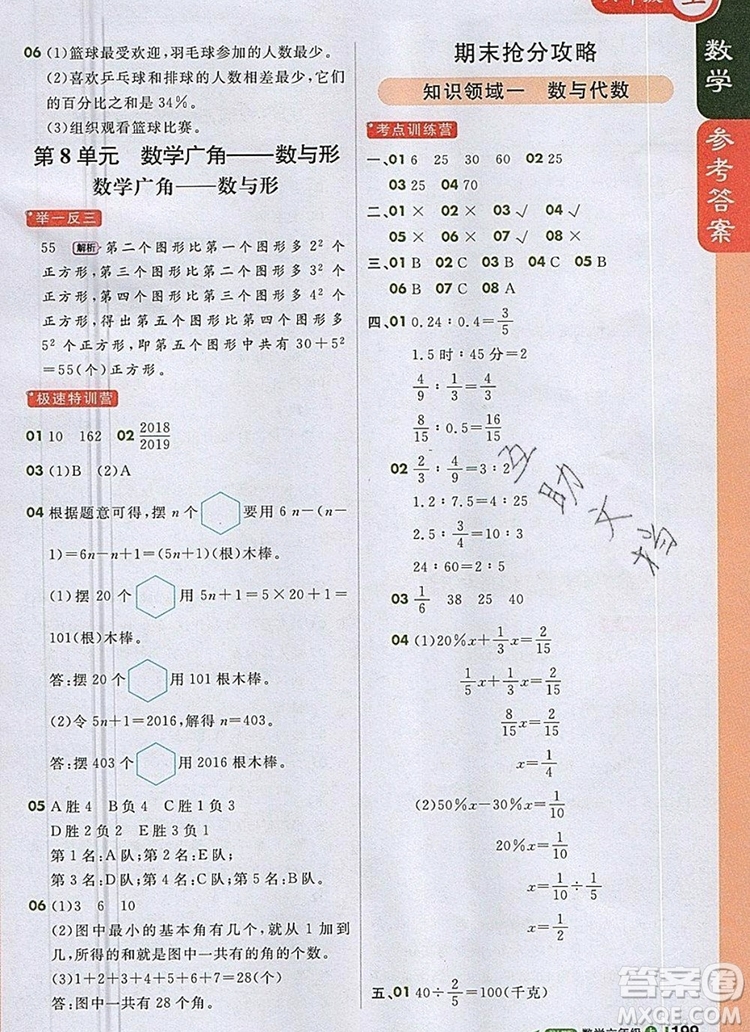 06 (1)篮球最受欢迎,羽毛球参加的人数最少。
(2)喜欢乒乓球和排球的人数差不多,它
们的百分比之和是34%。
(3)组织观看篮球比赛。
第8单元 数学广角——数与形
数学广角——数与形
举一反三
55 解析 第二个图形比第一个图形多2²个
正方形,第三个图形比第二个图形多3²个
正方形,第四个图形比第三个图形多4²个
正方形,得出第五个图形比第四个图形多
5²个正方形,即第五个图形中共有30+5²
=55(个)正方形。
极速特训营
01 10 162 02 2018/2019
03 (1)B (2)A
04 根据题意可得,摆n个 要用6n-(n-
1)=6n-n+1=5n+1(根)木棒。
(1)摆20个 用5n+1=5×20+1=
101(根)木棒。
答:摆20个 用101根木棒。
(2)令5n+1=2016,解得n=403。
答:摆403个 用2016根木棒。
05 A胜4 B负4 C胜1负3
D胜2负2 E胜3负1
第1名:A队;第2名:E队;
第3名:D队;第4名:C队;
第5名:B队
06 (1)3 6 10
(2)图中最小的基本角有几个,就从1加到
几,所得的和就是图中一共有的角的个数。
(3)1+2+3+4+5+6+7=28(个)
答:图中一共有28个角。
期末抢分攻略
知识领域一 数与代数
考点训练营
一、01 6 25 30 60 02 25
03 25 04 70
二、01 × 02 × 03 √ 04 √
05 × 06 × 07 √ 08 ×
三、01 B 02 C 03 C 04 C 05 B
06 B 07 C 08 A
四、01 0.24∶0.4=3/5
1.5时∶45分=2
4/9∶1/3=4/3
8/15∶0.4=4/3
02 2/3∶4/9=3∶2
1.2∶7.5=4∶25
2.5∶3/4=10∶3
24∶60=2∶5
03 1/6 38 25 40
04 (1)20%x+1/3x=2/15
1/5x+1/3x=2/15
8/15x=2/15
x=1/4
(2)50%x-30%x=1/10
20%x=1/10
x=1/10÷1/5
x=1/2
五、01 40÷2/5=100(千克)
数学
参考答案
上
互助文档
答案圈
MXQE.COM
数学六年级 上 199